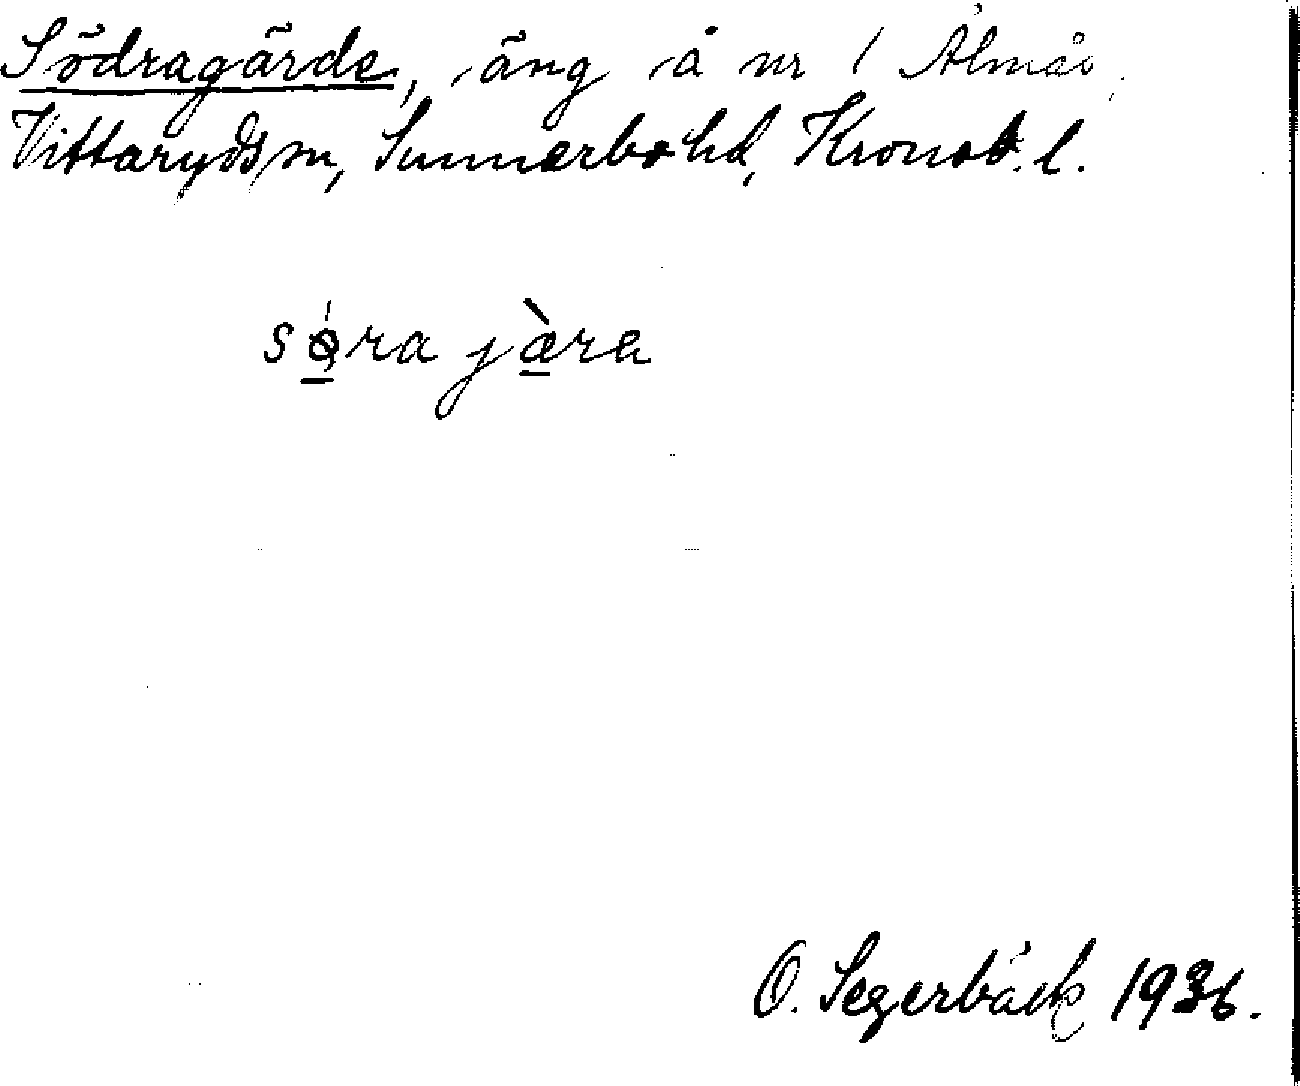 Södragärde, äng å nr 1 Älmås
Vittaryds sn, Sunnerbo hd, Kronob. l.
sø̱ra jæ̱̀ra
O. Segerbäck 1936.